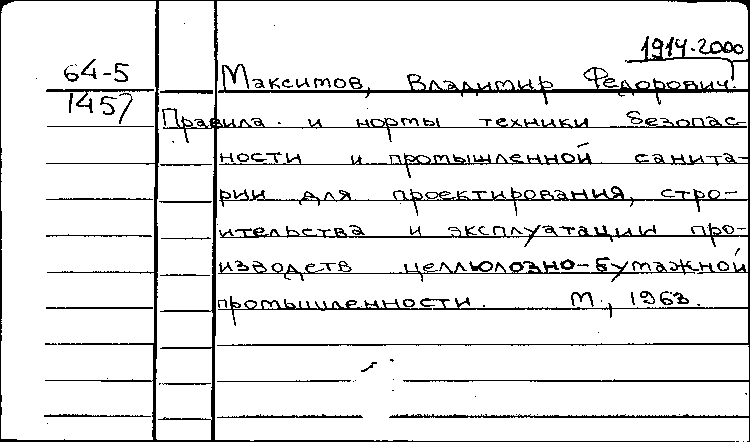 1914-2000
64-5 Максимов, Владимир Федорович.
1457
Правила и нормы техники безопас-
ности и промышленной санита-
рии для проектирования, стро-
ительства и эксплуатации про-
изводств целлюлозно-бумажной
промышленности. М., 1963.